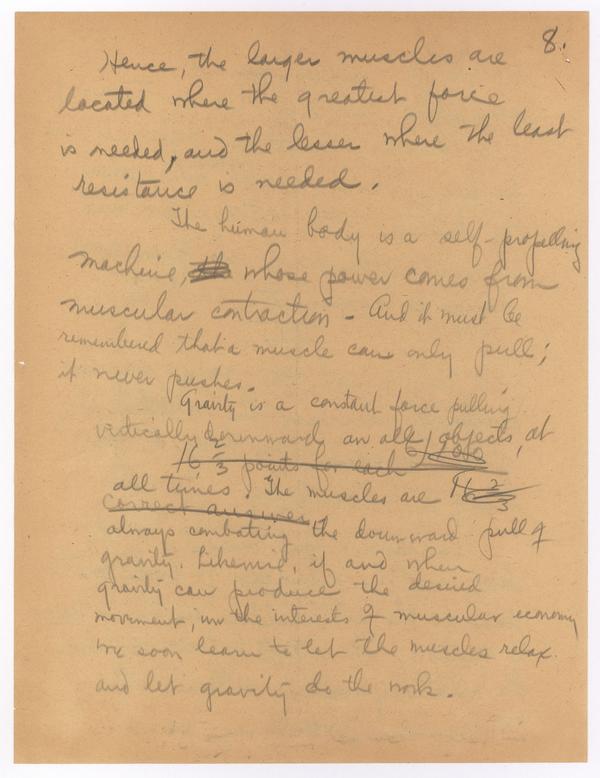 8.
Hence, the larger muscles are
located where the greatest force
is needed, and the lesser where the least
resistance is needed.
The human body is a self-propelling
machine, the whose power comes from
muscular contraction - And it must be
remembered that a muscle can only pull;
it never pushes.
Gravity is a constant force pulling
vertically downward on all objects, at
16 2/3 points for each 6/100
all times. The muscles are 16 2/3
correct answer.
always combating the downward pull of
gravity. Likewise, if and when
gravity can produce the desired
movement, in the interests of muscular economy
we soon learn to let the muscles relax
and let gravity do the work.